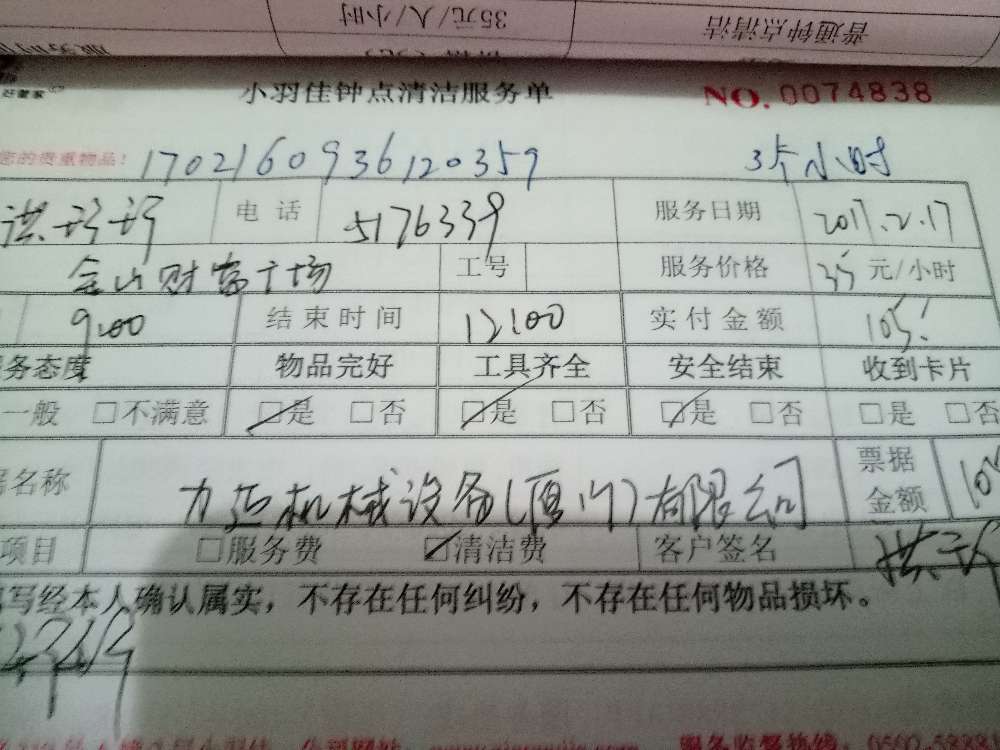 35元/人/小时 普通钟点清洁
小羽佳钟点清洁服务单 NO.0074838
您的贵重物品! 1702160936120359 3卡小时
电话 5176339 服务日期 2017.2.17
金山财富广场 工号 服务价格 35 元/小时
9:00 结束时间 12:00 实付金额 105
务态度 物品完好 工具齐全 安全结束 收到卡片
一般 □不满意 ☑是 □否 ☑是 □否 ☑是 □否 □是 □否
名称 力亚机械设备(厦门)有限公司 票据金额 105
项目 □服务费 ☑清洁费 客户签名
写经本人确认属实，不存在任何纠纷，不存在任何物品损坏。